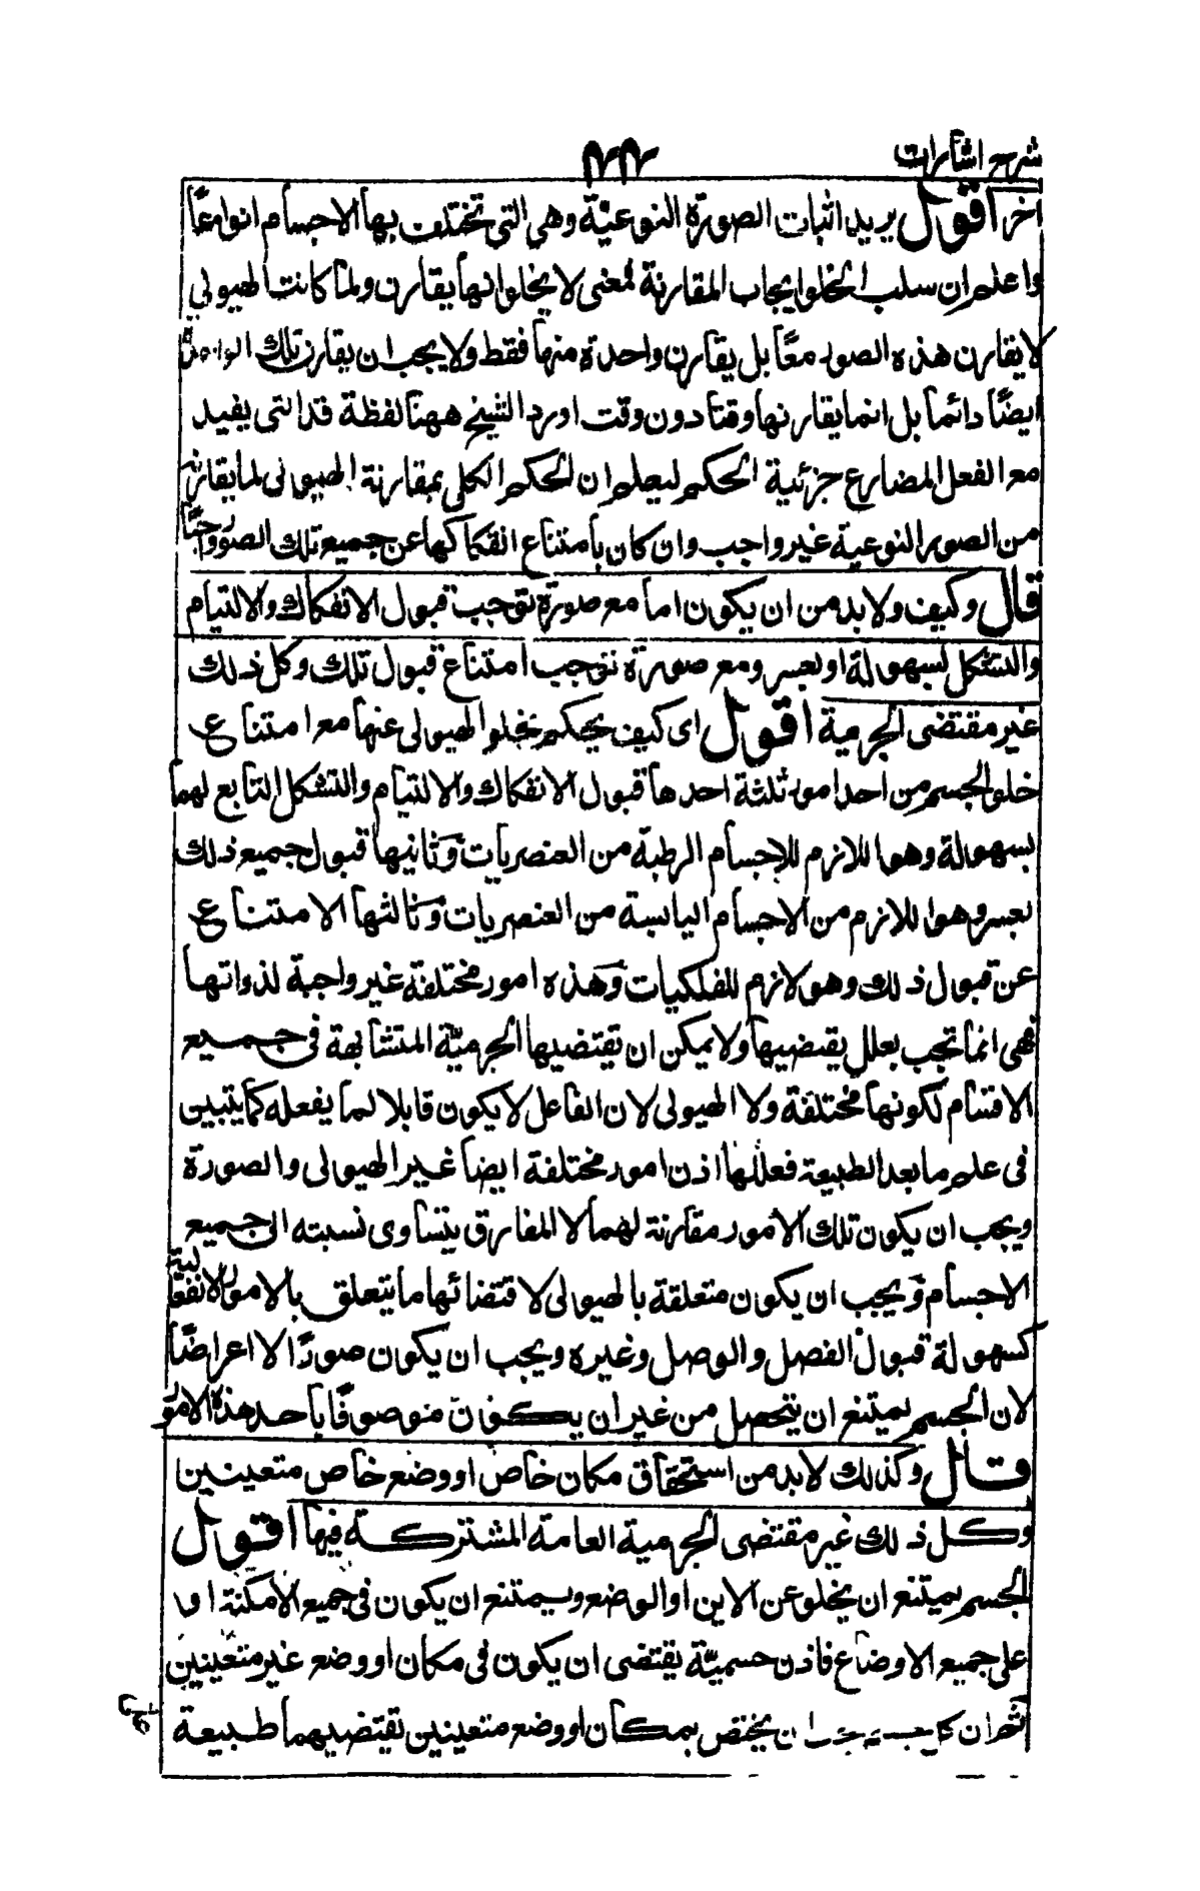 شرح اشارات
٤٤
اخر اقول يريد اثبات الصورة النوعيّة وهي التي تختلف بها الاجسام انواعًا
واعلم ان سلب الخلو ايجاب المقارنة فمعنى لا يخلوا انها يقارن ولما كانت الهيولي
لا يقارن هذه الصور معًا بل يقارن واحدة منها فقط ولا يجب ان يقارن تلك الواحدة
ايضًا دائما بل انما يقارنها وقتا دون وقت اورد الشيخ ههنا لفظة قد التي يفيد
مع الفعل المضارع جزئية الحكم ليعلم ان الحكم الكلى بمقارنة الهيولى لما يقارنه
من الصور النوعية غير واجب وان كان بامتناع انفكاكها عن جميع تلك الصور واجبًا
قال وكيف ولا بد من ان يكون اما مع صورة توجب قبول الانفكاك والالتيام
والتشكل بسهولة او بعسر ومع صورة توجب امتناع قبول تلك وكل ذلك
غير مقتضى الجرمية اقول اى كيف يحكم بخلو الهيولى عنها مع امتناع
خلو الجسم من احد امور ثلثة احدها قبول الانفكاك والالتيام والتشكل التابع لهما
بسهولة وهو اللازم للاجسام الرطبة من العنصريات وثانيها قبول جميع ذلك
بعسر وهو اللازم من الاجسام اليابسة من العنصريات وثالثها الامتناع
عن قبول ذلك وهو لازم للفلكيات وهذه امور مختلفة غير واجبة لذواتها
فهى انما تجب بعلل يقتضيها ولا يمكن ان يقتضيها الجرميّة المتشابهة فى جميع
الاقسام لكونها مختلفة ولا الهيولى لان الفاعل لا يكون قابلا لما يفعله كما يتبين
فى علم ما بعد الطبيعة فعللها اذن امور مختلفة ايضا غير الهيولى والصورة
ويجب ان يكون تلك الامور مقارنة لهما لا المفارق يتساوى نسبته الى جميع
الاجسام ويجب ان يكون متعلقة بالهيولى لاقتضائها ما يتعلق بالامور الانفعالية
كسهولة قبول الفصل والوصل وغيره ويجب ان يكون صورًا لا اعراضًا
لان الجسم يمتنع ان يتحصل من غير ان يكون موصوفًا باحد هذه الامور
قال وكذلك لا بد من استحقاق مكان خاص او وضع خاص متعينين
وكل ذلك غير مقتضى الجرمية العامة المشتركة فيها اقول
الجسم يمتنع ان يخلو عن الاين او الوضع ويمتنع ان يكون فى جميع الامكنة او
على جميع الاوضاع فاذن جسميّة يقتضى ان يكون فى مكان او وضع غير متعينين
ثم ان كل جسم يجب ان يختص بمكان او وضع متعينين تقتضيهما طبيعة